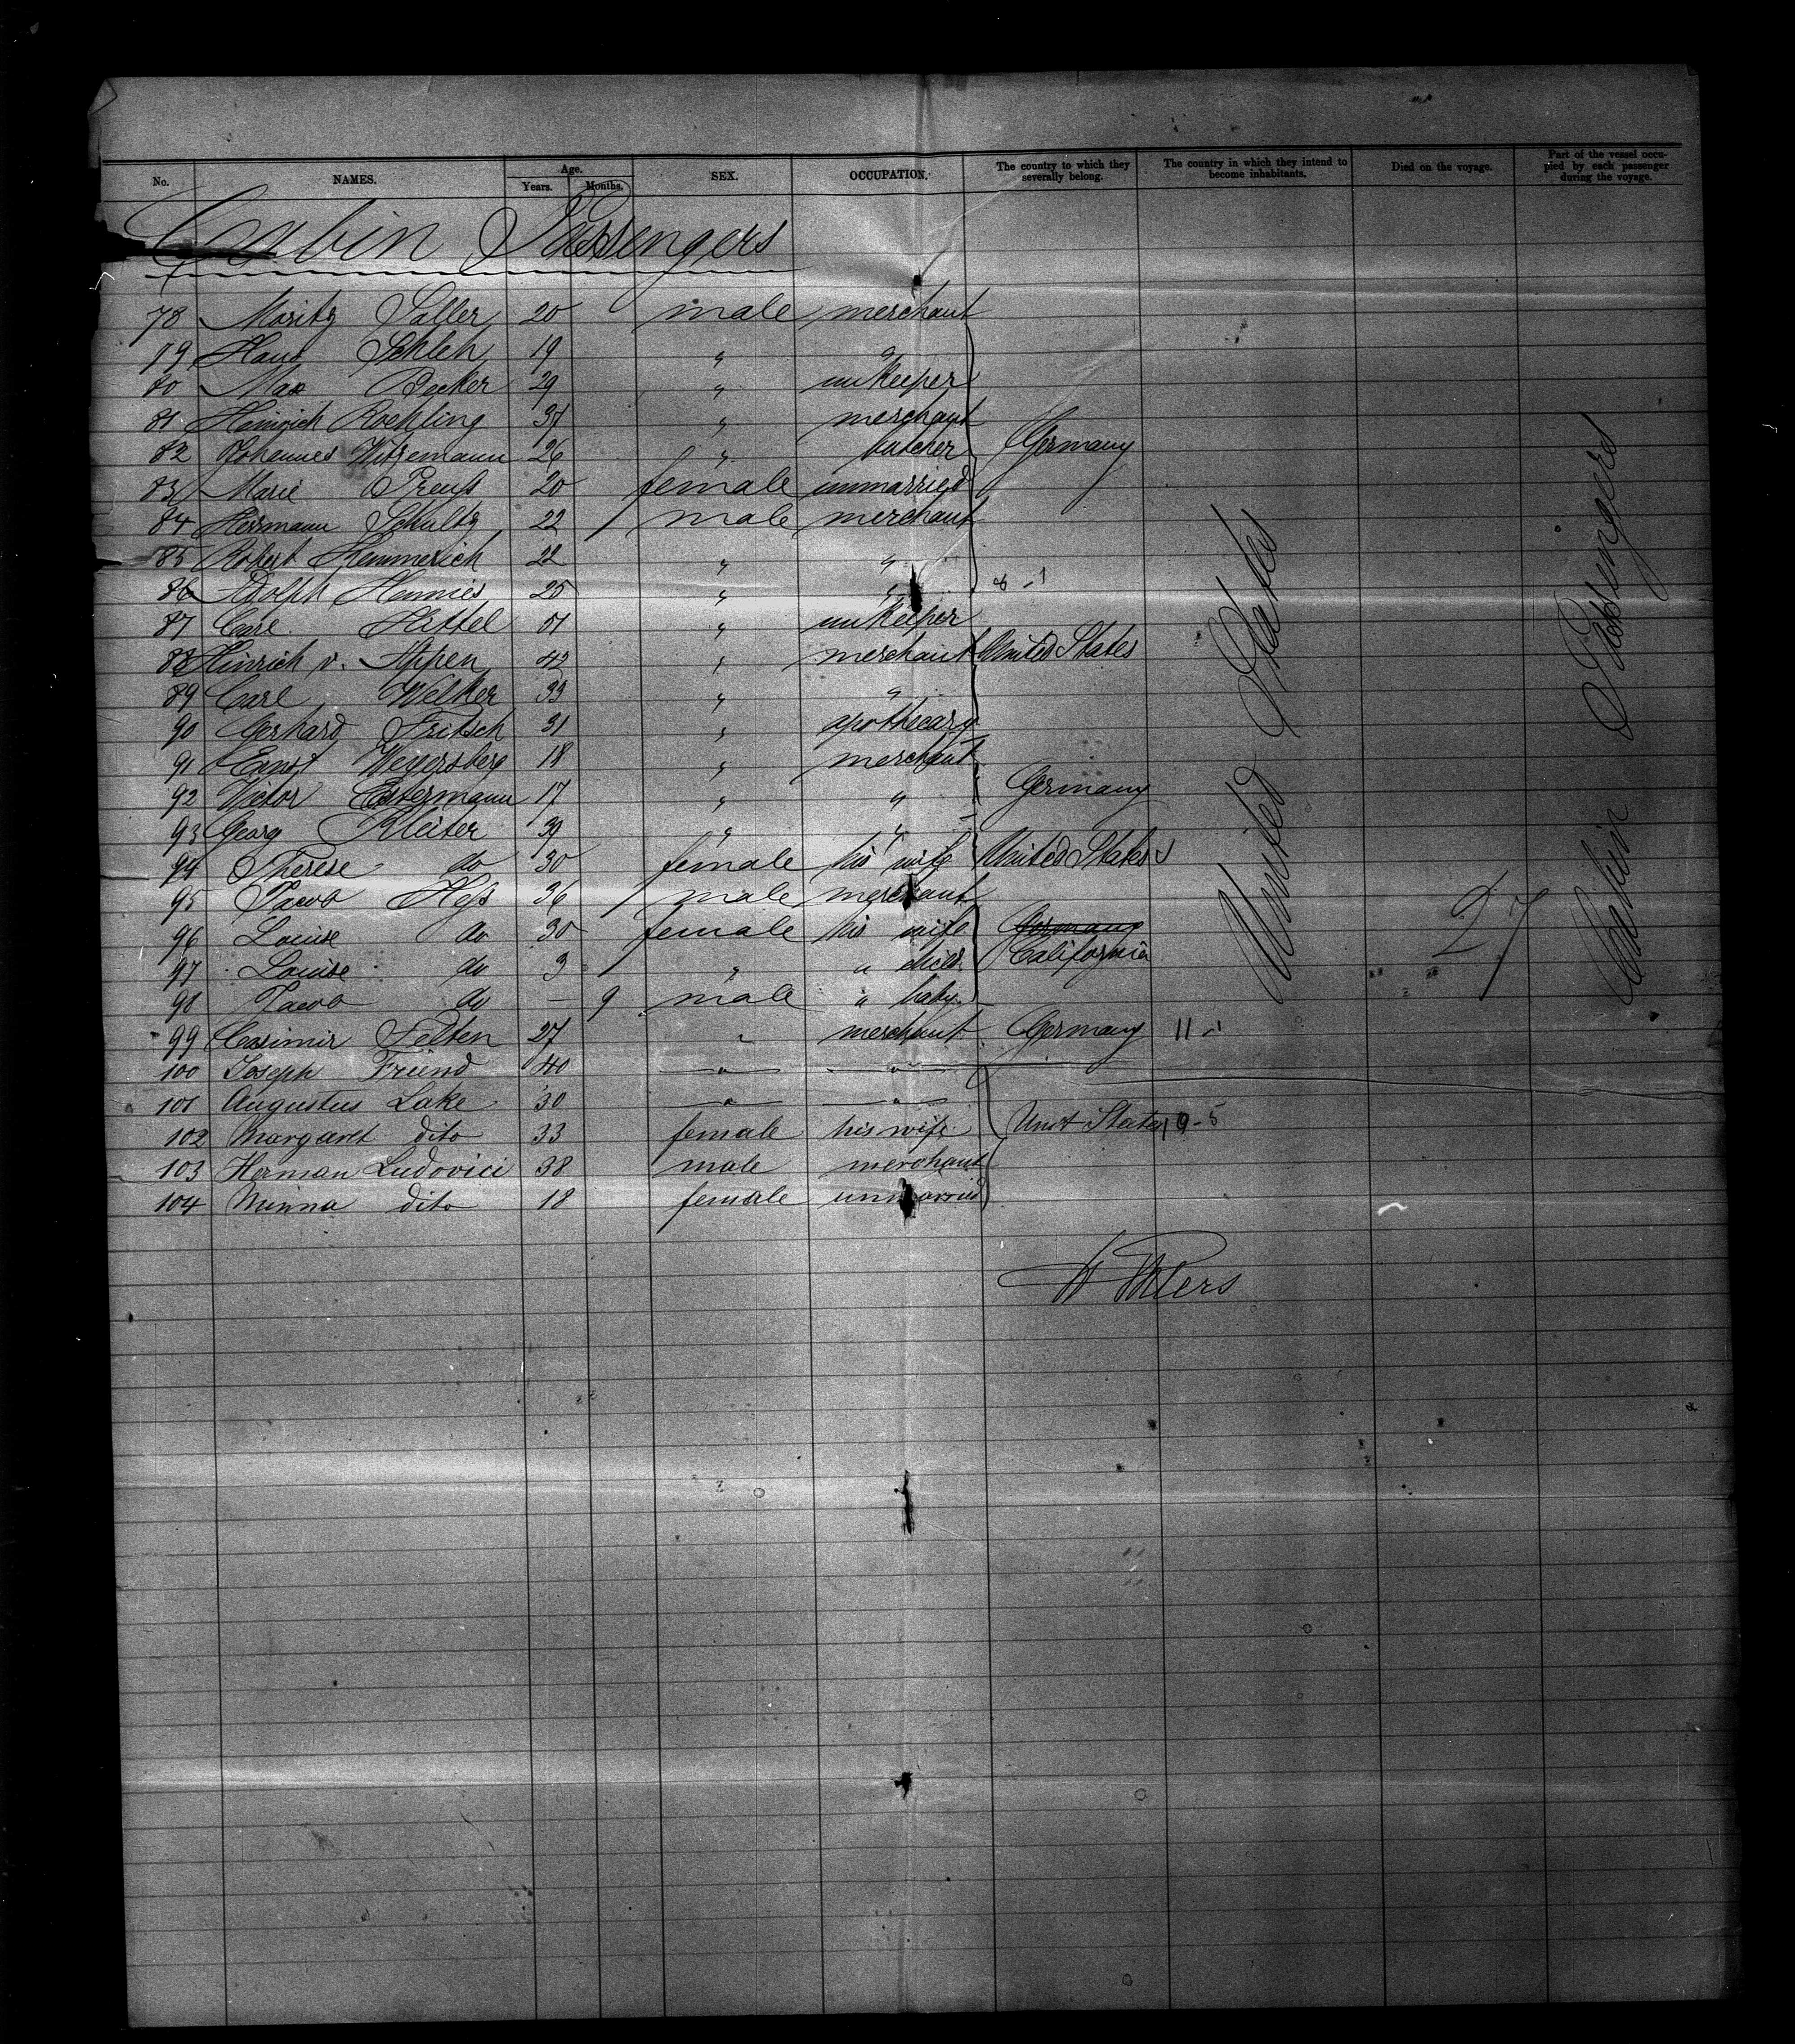 No. NAMES. Age. Years. Months. SEX. OCCUPATION. The country to which they severally belong. The country in which they intend to become inhabitants. Died on the voyage. Part of the vessel occupied by each passenger during the voyage.
Cabin Passengers
78 Moritz Saller 20 male merchant
79 Hans Schleh 19 " "
80 Max Becker 29 " innkeeper
81 Heinrich Roehling 37 " merchant
82 Johannes Witzemann 26 " butcher Germany
83 Marie Preuß 20 female unmarried
84 Hermann Schultz 22 male merchant
85 Robert Hemmerich 22 " "
86 Adolph Hennies 25 " "
87 Carl Hettel " innkeeper
88 Hinrich v. Appen 42 " merchant United States
89 Carl Welker 33 " "
90 Gerhard Fritsch 31 " apothecary
91 Ernst Weyersberg 18 " merchant
92 Victor Ostermann 17 " " Germany
93 Georg Kleiter 39 " "
94 Therese do 30 female his wife United States
95 Jacob Heß 36 male merchant
96 Louise do 30 female his wife Germany
97 Louise do 3 " " child California
98 Jacob do - 9 male " baby
99 Casimir Felten 27 " merchant Germany 11
100 Joseph Friend 40 " "
101 Augustus Lake 30 " "
102 Margaret dito 33 female his wife Unit States 19-5
103 Herman Ludovici 38 male merchant
104 Minna dito 18 female unmarried
United States
27
Cabin Passengers